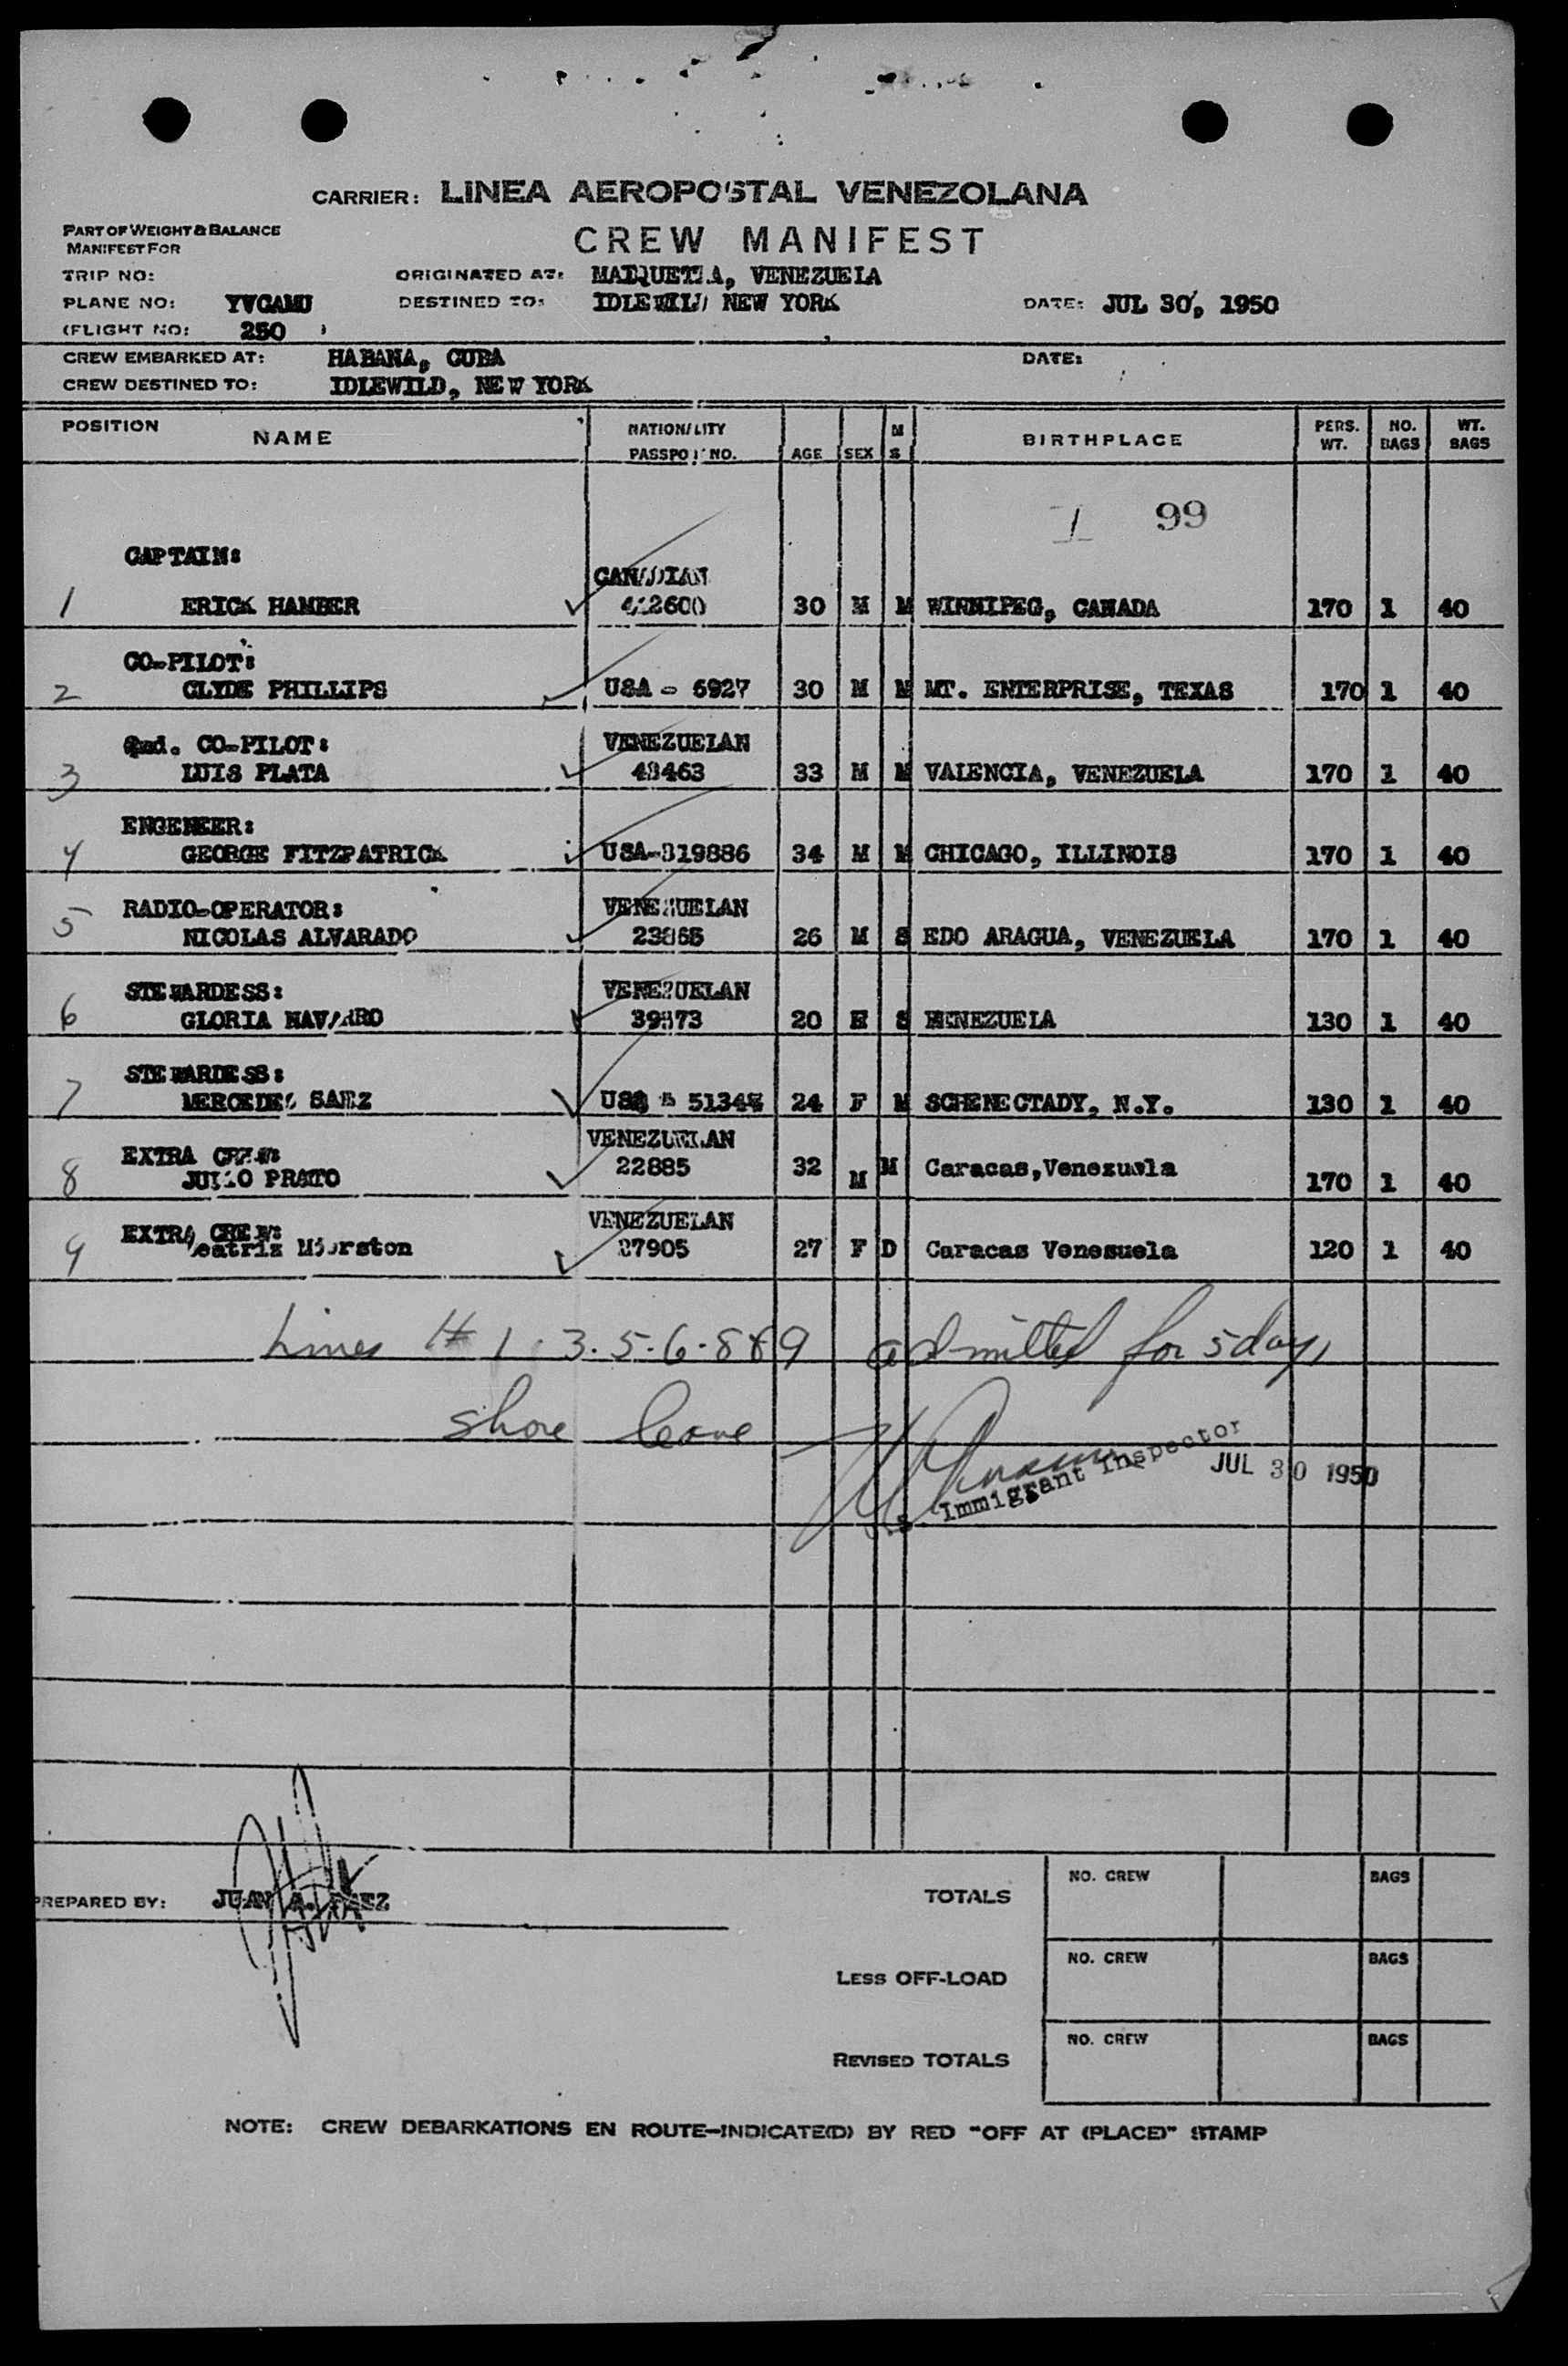 CARRIER: LINEA AEROPOSTAL VENEZOLANA
PART OF WEIGHT & BALANCE
MANIFEST FOR
CREW MANIFEST
TRIP NO: ORIGINATED AT: MAIQUETIA, VENEZUELA
PLANE NO: YVCAMU DESTINED TO: IDLEWILD NEW YORK DATE: JUL 30, 1950
(FLIGHT NO: 250
CREW EMBARKED AT: HABANA, CUBA DATE:
CREW DESTINED TO: IDLEWILD, NEW YORK
POSITION NAME NATIONALITY PASSPORT NO. AGE SEX M S BIRTHPLACE PERS. WT. NO. BAGS WT. BAGS
1 99
CAPTAIN: CANADIAN
1 ERICK HAMBER 412600 30 M M WINNIPEG, CANADA 170 1 40
CO-PILOT:
2 CLYDE PHILLIPS USA - 6927 30 M M MT. ENTERPRISE, TEXAS 170 1 40
CO-PILOT: VENEZUELAN
3 LUIS PLATA 43463 33 M M VALENCIA, VENEZUELA 170 1 40
ENGENEER:
4 GEORGE FITZPATRICK USA-319886 34 M M CHICAGO, ILLINOIS 170 1 40
RADIO-OPERATOR: VENEZUELAN
5 NICOLAS ALVARADO 26 M S EDO ARAGUA, VENEZUELA 170 1 40
STEWARDESS: VENEZUELAN
6 GLORIA NAVARRO 20 S VENEZUELA 130 1 40
STEWARDESS:
7 MERCEDES SAEZ 24 F M SCHENECTADY, N.Y. 130 1 40
EXTRA CREW: VENEZUELAN
8 JULIO PRATO 22885 32 M M Caracas, Venezuela 170 1 40
EXTRA CREW: VENEZUELAN
9 Beatriz 27 F D Caracas Venesuela 120 1 40
Lines # 1. 3. 5. 6. 8 & 9 admitted for 5 days
shore leave
Immigrant Inspector JUL 30 1950
PREPARED BY: JUAN A. PAEZ
TOTALS NO. CREW BAGS
LESS OFF-LOAD NO. CREW BAGS
REVISED TOTALS NO. CREW BAGS
NOTE: CREW DEBARKATIONS EN ROUTE-INDICATE(D) BY RED "OFF AT (PLACE)" STAMP